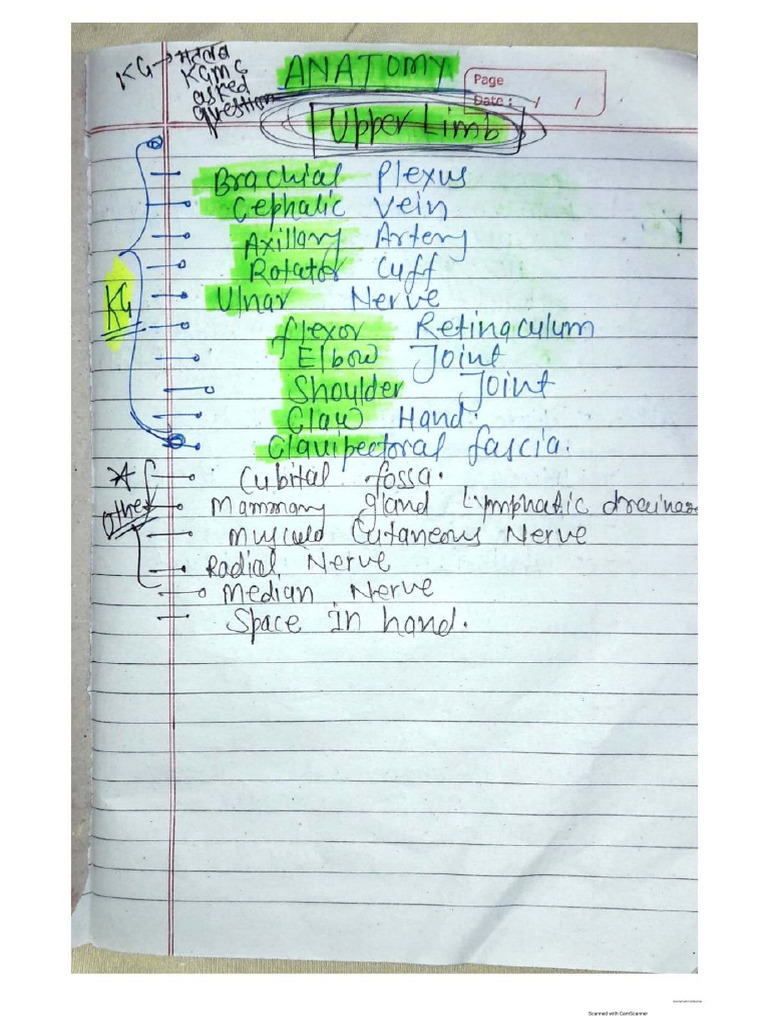 KG → मतलब
KGMC
asked
question
ANATOMY
Page
Date : / /
Upper Limb
KG
Brachial Plexus
Cephalic Vein
Axillary Artery
Rotator Cuff
Ulnar Nerve
flexor Retinaculum
Elbow Joint
Shoulder Joint
Claw Hand.
Clavipectoral fascia.
Other
Cubital fossa.
Mammary gland Lymphatic drainage
Cutaneous Nerve
Radial Nerve
Median Nerve
Space In hand.
Scanned with CamScanner